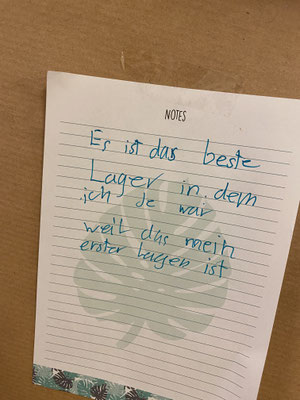 NOTES
Es ist das beste
Lager in dem
ich je war
weil das mein
erster Lager ist